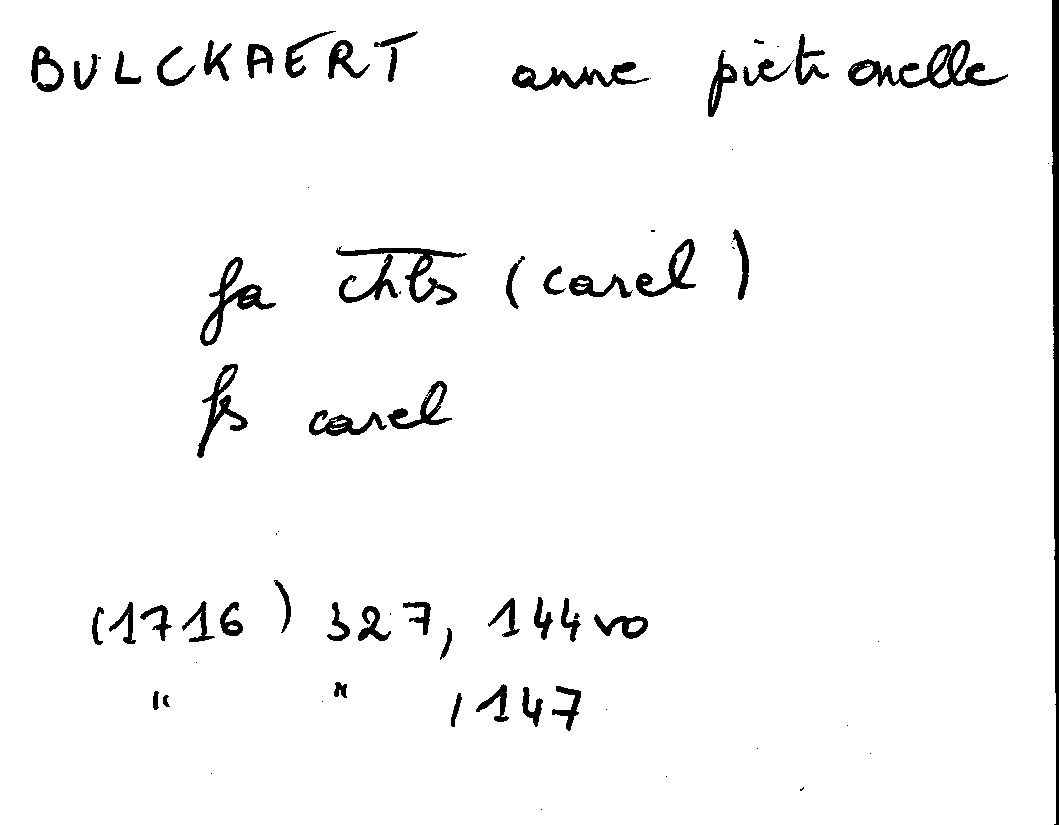 BULCKAERT anne pietronelle
fa chls (carel)
fs carel
(1716) 327, 144vo
" " , 147